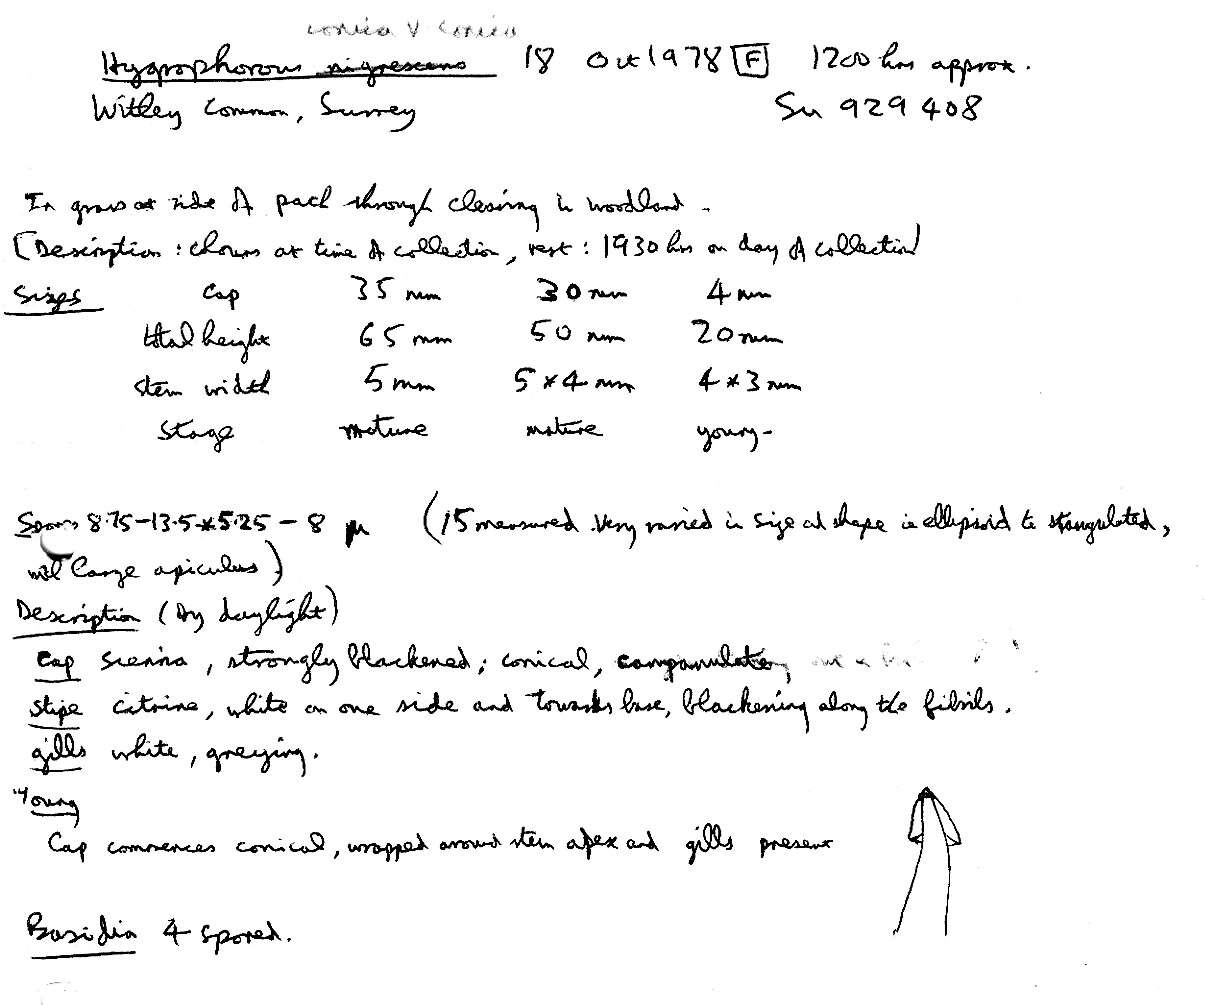 conica v conica
Hygrophorous nigrescens 18 Oct 1978 F 1200 hrs approx.
Witley Common, Surrey Su 929 408
In grass at side of path through clearing in woodland.
[Description: colours at time of collection, rest: 1930 hrs on day of collection]
Sizes Cap 35 mm 30 mm 4 mm
total height 65 mm 50 mm 20 mm
stem width 5 mm 5*4 mm 4*3 mm
Stage mature mature young
Spores 8.75-13.5*5.25-8 μ (15 measured. Very varied in size and shape ie ellipsoid to strangulated,
with large apiculus)
Description (by daylight)
Cap sienna, strongly blackened; conical, campanulate,
stipe citrine, white on one side and towards base, blackening along the fibrils.
gills white, greying.
Young
Cap commences conical, wrapped around stem apex and gills present
Basidia 4 spored.